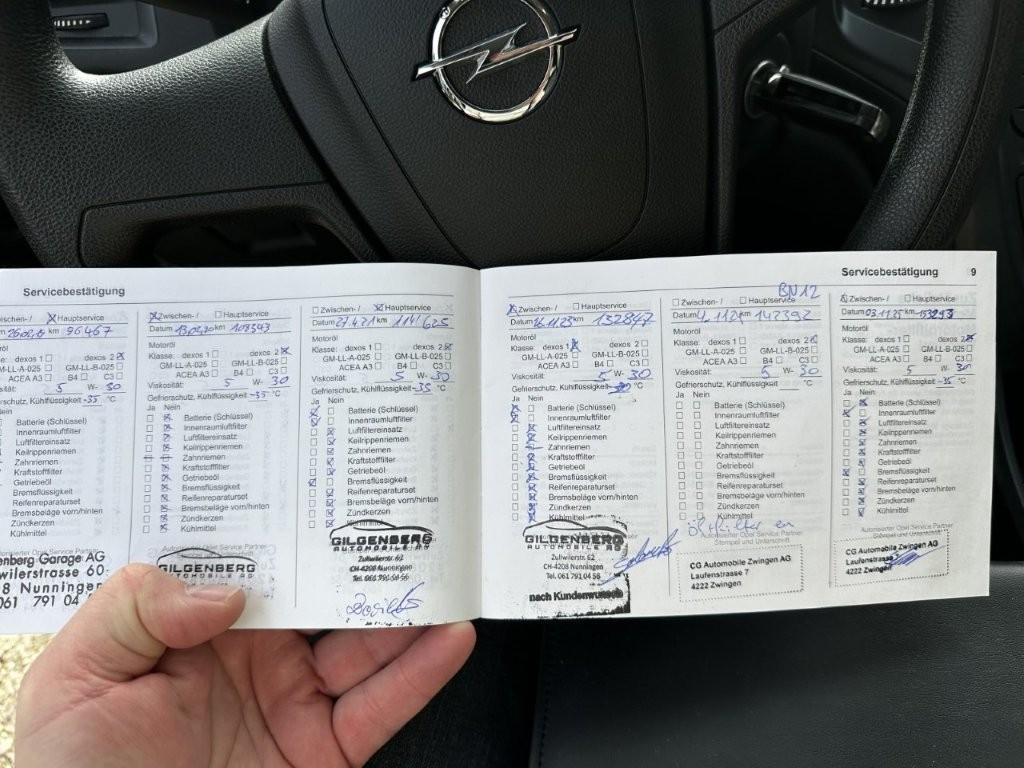 Servicebestätigung
Zwischen-/ Hauptservice
26.02.19 km 96467
Motoröl
Klasse: dexos 1 dexos 2
GM-LL-A-025 GM-LL-B-025
ACEA A3 B4 C3
Viskosität: 5 W- 30
Gefrierschutz, Kühlflüssigkeit -35 °C
Ja Nein
Batterie (Schlüssel)
Innenraumluftfilter
Luftfiltereinsatz
Keilrippenriemen
Zahnriemen
Kraftstofffilter
Getriebeöl
Bremsflüssigkeit
Reifenreparaturset
Bremsbeläge vorn/hinten
Zündkerzen
Kühlmittel
Autorisierter Opel Service Partner
nberg Garage AG
wilerstrasse 60
8 Nunningen
061 791 04
Zwischen-/ Hauptservice
Datum km 108343
Motoröl
Klasse: dexos 1 dexos 2
GM-LL-A-025 GM-LL-B-025
ACEA A3 B4 C3
Viskosität: 5 W- 30
Gefrierschutz, Kühlflüssigkeit -35 °C
Ja Nein
Batterie (Schlüssel)
Innenraumluftfilter
Luftfiltereinsatz
Keilrippenriemen
Zahnriemen
Kraftstofffilter
Getriebeöl
Bremsflüssigkeit
Reifenreparaturset
Bremsbeläge vorn/hinten
Zündkerzen
Kühlmittel
Autorisierter Opel Service Partner
GILGENBERG
AUTOMOBILE AG
Zwischen-/ Hauptservice
Datum 27.4.21 km 114625
Motoröl
Klasse: dexos 1 dexos 2
GM-LL-A-025 GM-LL-B-025
ACEA A3 B4 C3
Viskosität: 5 W- 30
Gefrierschutz, Kühlflüssigkeit -35 °C
Ja Nein
Batterie (Schlüssel)
Innenraumluftfilter
Luftfiltereinsatz
Keilrippenriemen
Zahnriemen
Kraftstofffilter
Getriebeöl
Bremsflüssigkeit
Reifenreparaturset
Bremsbeläge vorn/hinten
Zündkerzen
Kühlmittel
GILGENBERG
AUTOMOBILE AG
Zullwilerstr. 62
CH-4208 Nunningen
Tel. 061 791 04 56
Servicebestätigung 9
Zwischen-/ Hauptservice
Datum 16.11.23 km 132847
Motoröl
Klasse: dexos 1 dexos 2
GM-LL-A-025 GM-LL-B-025
ACEA A3 B4 C3
Viskosität: 5 W- 30
Gefrierschutz, Kühlflüssigkeit °C
Ja Nein
Batterie (Schlüssel)
Innenraumluftfilter
Luftfiltereinsatz
Keilrippenriemen
Zahnriemen
Kraftstofffilter
Getriebeöl
Bremsflüssigkeit
Reifenreparaturset
Bremsbeläge vorn/hinten
Zündkerzen
Kühlmittel
GILGENBERG
AUTOMOBILE AG
Zullwilerstr. 62
CH-4208 Nunningen
Tel. 061 791 04 56
nach Kundenwunsch
BN12
Zwischen-/ Hauptservice
Datum km 142392
Motoröl
Klasse: dexos 1 dexos 2
GM-LL-A-025 GM-LL-B-025
ACEA A3 B4 C3
Viskosität: 5 W- 30
Gefrierschutz, Kühlflüssigkeit °C
Ja Nein
Batterie (Schlüssel)
Innenraumluftfilter
Luftfiltereinsatz
Keilrippenriemen
Zahnriemen
Kraftstofffilter
Getriebeöl
Bremsflüssigkeit
Reifenreparaturset
Bremsbeläge vorn/hinten
Zündkerzen
Kühlmittel
Autorisierter Opel Service Partner
Stempel und Unterschrift
CG Automobile Zwingen AG
Laufenstrasse 7
4222 Zwingen
Zwischen-/ Hauptservice
Datum 03.11.25 km 153293
Motoröl
Klasse: dexos 1 dexos 2
GM-LL-A-025 GM-LL-B-025
ACEA A3 B4 C3
Viskosität: 5 W- 30
Gefrierschutz, Kühlflüssigkeit -35 °C
Ja Nein
Batterie (Schlüssel)
Innenraumluftfilter
Luftfiltereinsatz
Keilrippenriemen
Zahnriemen
Kraftstofffilter
Getriebeöl
Bremsflüssigkeit
Reifenreparaturset
Bremsbeläge vorn/hinten
Zündkerzen
Kühlmittel
Autorisierter Opel Service Partner
Stempel und Unterschrift
CG Automobile Zwingen AG
Laufenstrasse 7
4222 Zwingen